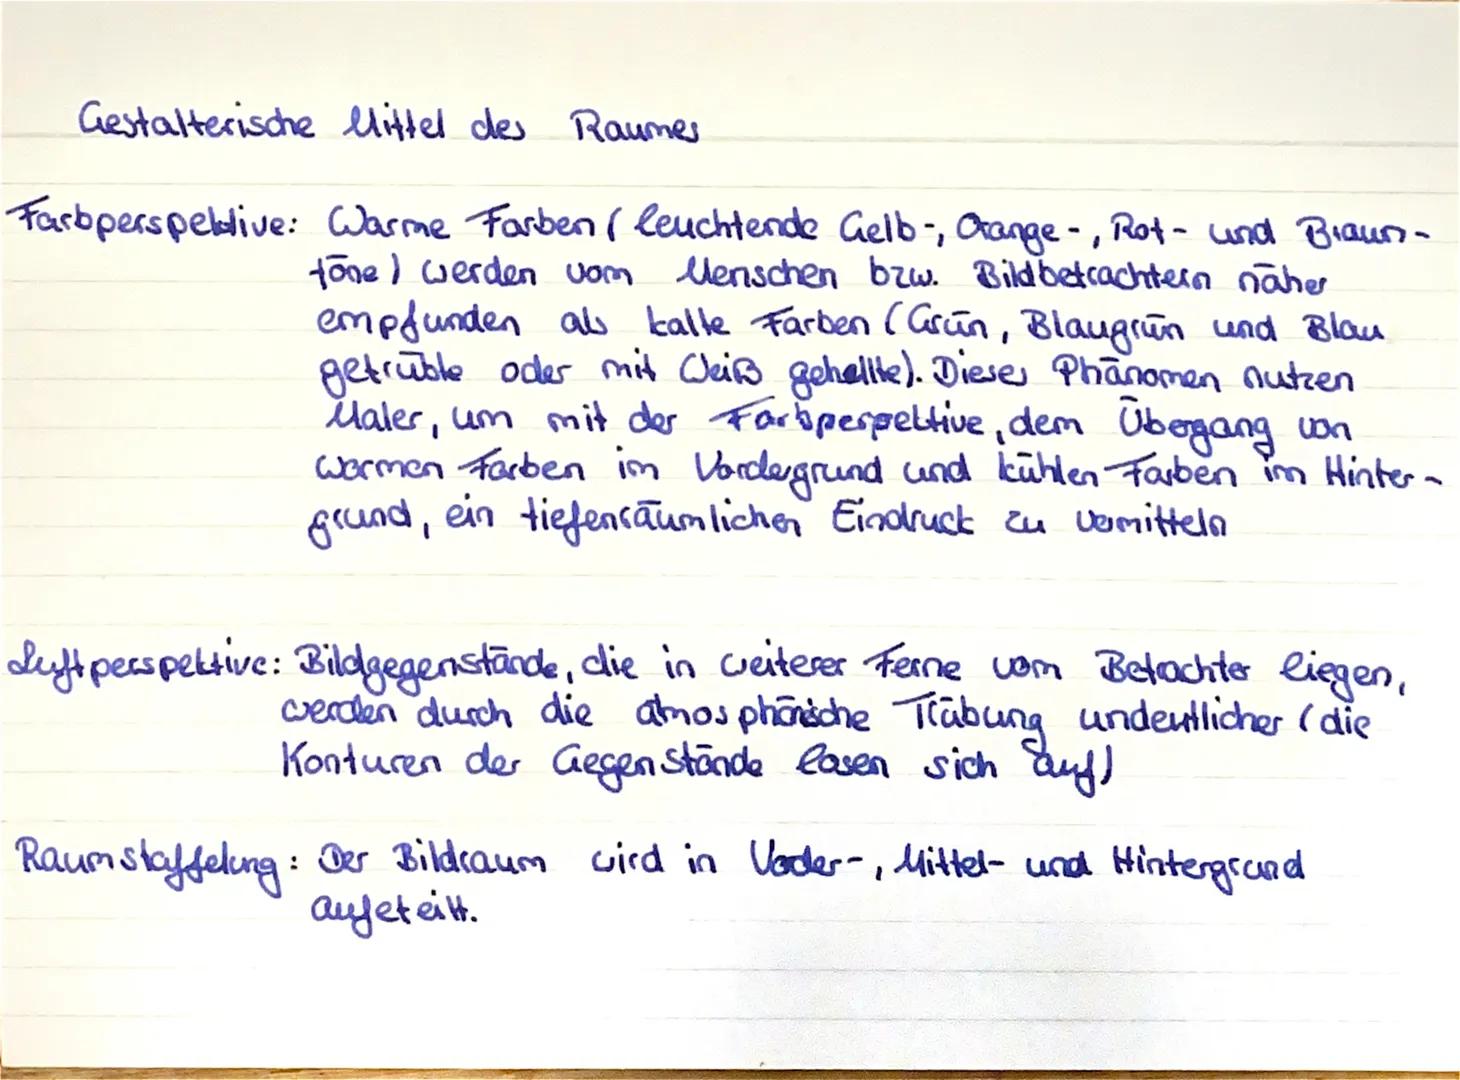 Gestalterische Mittel des Raumes
Farbperspektive: Warme Farben (leuchtende Gelb-, Orange-, Rot- und Braun-
töne) werden vom Menschen bzw. Bildbetrachtern näher
empfunden als kalte Farben (Grün, Blaugrün und Blau
getrübte oder mit Weiß gehellte). Dieses Phänomen nutzen
Maler, um mit der Farbperpektive, dem Übergang von
warmen Farben im Vordergrund und kühlen Farben im Hinter-
grund, ein tiefenräumlichen Eindruck zu vermitteln
Luftperspektive: Bildgegenstände, die in weiterer Ferne vom Betrachter liegen,
werden durch die atmosphärische Trübung undeutlicher (die
Konturen der Gegenstände lösen sich auf)
Raumstaffelung: Der Bildraum wird in Vorder-, Mittel- und Hintergrund
aufeteilt.